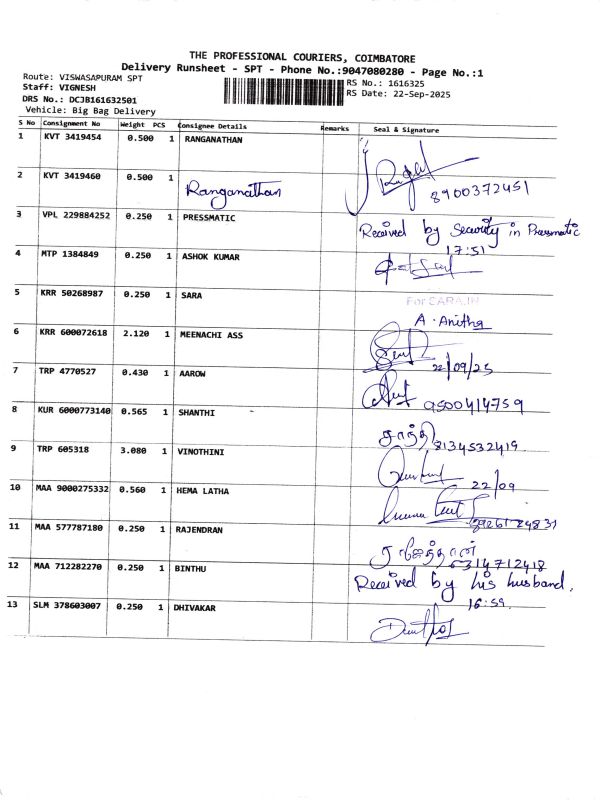 THE PROFESSIONAL COURIERS, COIMBATORE
Delivery Runsheet - SPT - Phone No.:9047080280 - Page No.:1
Route: VISWASAPURAM SPT
Staff: VIGNESH
DRS No.: DCJB161632501
Vehicle: Big Bag Delivery
RS No.: 1616325
RS Date: 22-Sep-2025
S No Consignment No Weight PCS Consignee Details Remarks Seal & Signature
1 KVT 3419454 0.500 1 RANGANATHAN
2 KVT 3419460 0.500 1 Ranganathan 8900372451
3 VPL 229884252 0.250 1 PRESSMATIC Received by Security in Pressmatic
17:51
4 MTP 1384849 0.250 1 ASHOK KUMAR
5 KRR 50268987 0.250 1 SARA For SARA.IN
A. Anitha
6 KRR 600072618 2.120 1 MEENACHI ASS 22/09/25
7 TRP 4770527 0.430 1 AAROW 9500414759
8 KUR 6000773140 0.565 1 SHANTHI சாந்தி 8134532419
9 TRP 605318 3.080 1 VINOTHINI 22/09
10 MAA 9000275332 0.560 1 HEMA LATHA
11 MAA 577787180 0.250 1 RAJENDRAN 6314712418
12 MAA 712282270 0.250 1 BINTHU Received by his husband.
16:59
13 SLM 378603007 0.250 1 DHIVAKAR